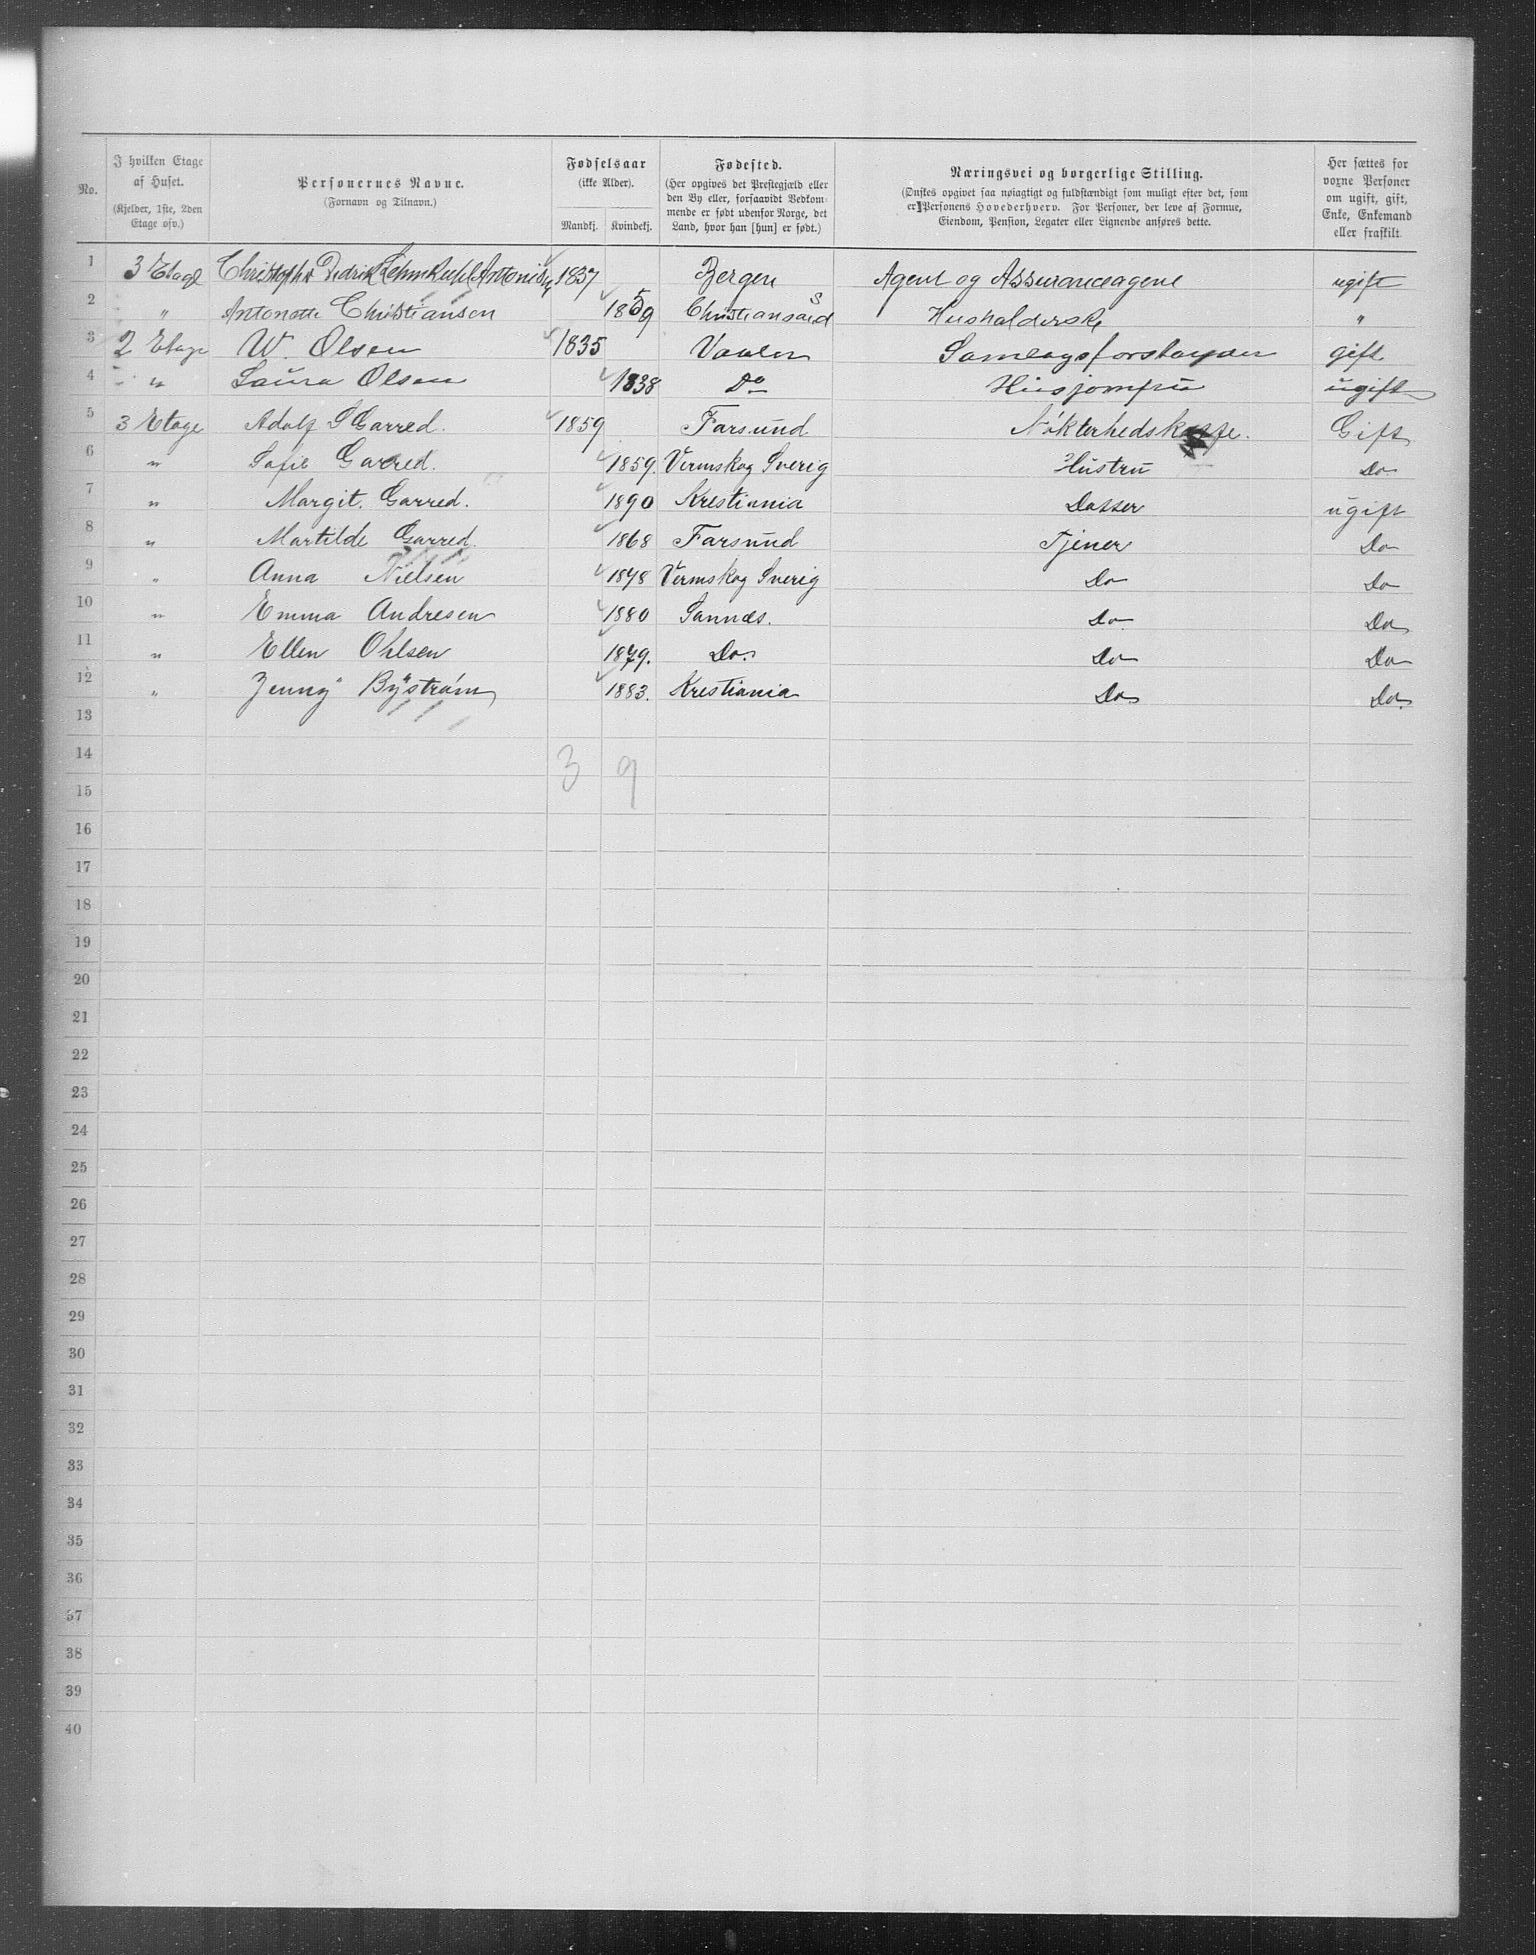 No. | I hvilken Etage af Huset. (Kjelder, 1ste, 2den Etage osv.) | Personernes Navne. (Fornavn og Tilnavn.) | Fødselsaar (ikke Alder). Mandkj. | Kvindekj. | Fødested. (Her opgives det Prestegjæld eller den By eller, forsaavidt Vedkommende er født udenfor Norge, det Land, hvor han [hun] er født.) | Næringsvei og borgerlige Stilling. (Ønskes opgivet saa nøiagtigt og fuldstændigt som muligt efter det, som er Personens Hovederhverv. For Personer, der leve af Formue, Eiendom, Pension, Legater eller Lignende anføres dette. | Her sættes for voxne Personer om ugift, gift, Enke, Enkemand eller fraskilt.
1 3 Etage Christopher Didrik 1837 Bergen Agent og Assuranceagent ugift
2 " Antonette Christiansen 1859 Christianssand Husholderske "
3 2 Etage W. Olsen 1835 Vaaler Samlagsforstander gift
4 " Laura Olsen 1838 Do Husjomfru ugift
5 3 Etage Adolf G Garred. 1859 Farsund Nøkterhedskaffe. Gift
6 " Sofie Garred. 1859. Vermskog Sverig Hustru Do
7 " Margit. Garred. 1890 Krestiania Datter ugift
8 " Martilde Garred. 1868 Farsund Tjener Do
9 " Anna Nielsen 1878 Vermskog Sverig Do Do
10 " Emma Andresen 1880 Sannæs. Do Do
11 " Ellen Ohlsen 1879. Do. Do Do
12 " Jenny Bÿstrøm 1883. Krestiania Do Do.
13
14 3 9
15
16
17
18
19
20
21
22
23
24
25
26
27
28
29
30
31
32
33
34
35
36
37
38
39
40